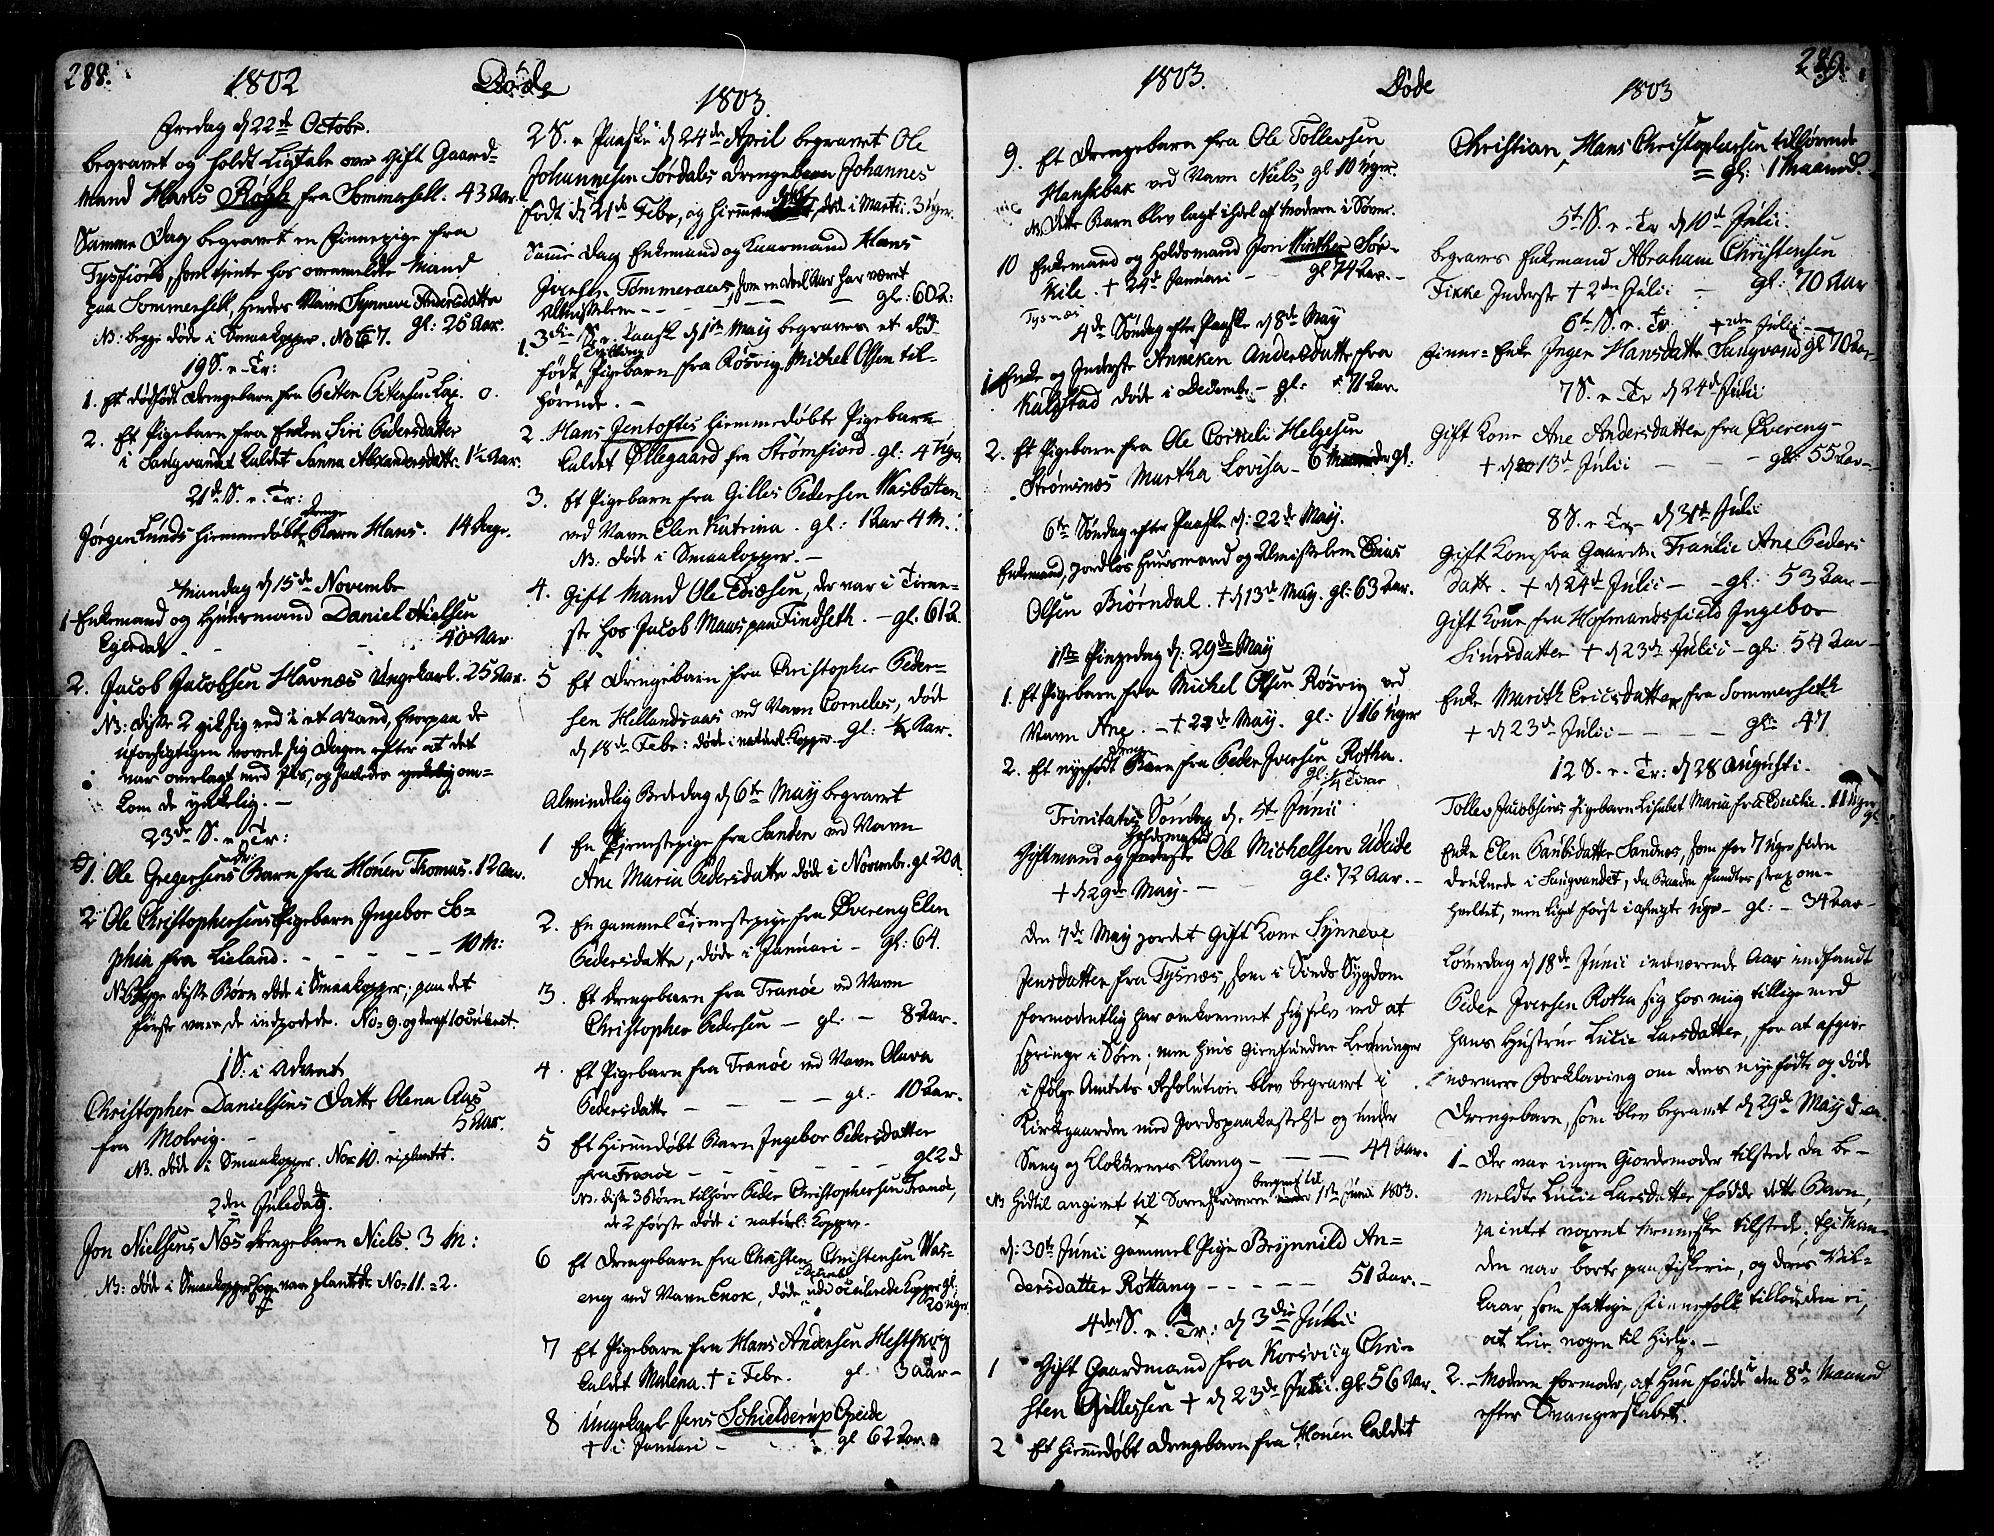 288.
1802
Døde
Fredag d 22de Octobr.
begravet og holdt Ligtale over Gift Gaard-
Mand Hans Røgh fra Sommersett. 43 Aar.
Samme Dag begravet en Finnepige fra
Tysfiord, som tiente hos ovenmeldte Mand
paa Sommersett, hendes Navn Synneve Andersdatter
NB: begge døde i Smaakopper. No 6=7. gl: 25 Aar.
19 S. e. Tr:
1. Et dødfødt Drengebarn fra Petter Petersen Lap. 0.
2. Et Pigebarn fra Enken Siri Pedersdatter
i Langvandet kaldet Sanna Alexandersdatter. 1½ Aar.
21de S. e. Tr:
Jørgen Lunds hiemmedøbte Drenge Barn Hans. 14 Dage.
Mandag d 15de Novembr
1 Enkemand og Huusmand Daniel Nielsen
Egerdal - - - 40 Aar
2. Jacob Jacobsen Havnæs Ungekarl. 25 Aar.
NB: disse 2 gik sig ned i et Vand, hvorpaa de
uforsigtigen vovede sig Dagen efter at det
var overlagt med Iis, og saaledes ynkelig om-
kom de ynkelig. -
23de S. e. Tr:
1. Ole Gregersens Dr: Barn fra Mouen Thomas. 12 Aar.
2 Ole Christophersens Pigebarn Ingebor So-
phia fra Lieland. - - - - - 10 M:
NB: begge disse Børn døde i Smaakopper; paa det
første vare de indpodede. No=9. og deraf 1 oculeret.
1 S: i Advent
Christopher Danielsens Datter Olena Aas
fra Molvig. - - 5 Aar.
NB. døde i Smaakopper. No=10. ei plantet.
2den Juledag.
Jon Nielsens Næs Drengebarn Niels. 3 M:
NB: døde i Smaakopper som vare plantede No=11.=2.
1803.
2 S. e Paaske d 24de April begravet Ole
Johannesen Sørdals Drengebarn Johannes
født d 21de Febr, og hiemmedøbt, døde i Marti. 3 Uger.
Samme Dag Enkemand og Kaarmand Hans
Iversen Tømmeraas, som en deel Aar har været
Almisselem - - - - gl: 60 A:
3die S. e. Paaske d 1ste May begraves et død-
1. født Tvilling Pigebarn fra Røsvig Michel Olsen til-
hørende. -
2. Hans Jentoftes hiemmedøbte Pigebarn
kaldet Ollegaard fra Strømfiord. gl: 4 Uger
3. Et Pigebarn fra Gilles Pedersen Nasbotten
ved Navn Elen Katrina. gl: 1 Aar 4 M.
NB. døde i Smaakopper. -
4. Gift Mand Ole Eliæsen, der var i Tiene-
ste hos Jacob Maas paa Findseth. - gl: 61 A.
5 Et Drengebarn fra Christopher Peder-
sen Hellandsaas ved Navn Cornelius, døde
d 18de Febr: døde i naturl: Kopper. gl: ½ Aar.
Almindelig Bededag d 6te May begravet
1 En Tienestepige fra Sanden ved Navn
Ane Maria Pedersdatter døde i Novembr. gl 20 A.
2. En gammel Tienestepige fra Øvereng Elen
Pedersdatter, døde i Januari - gl: 64.
3. Et Drengebarn fra Tranøe ved Navn
Christopher Pedersen - gl: - 8 Aar.
4. Et Pigebarn fra Tranøe ved Navn Olava
Pedersdatter - - - - gl: 10 Aar.
5 Et hiemmdøbt Barn Ingebor Pedersdatter
fra Tranøe - - - - - gl 2 d
NB. disse 3 Børn tilhøre Peder Christophersen Tranøe,
de 2 første døde i naturl: Kopper.
6 Et Drengebarn fra Christen Christensen Vas-
eng ved Navn Enok, døde udi oculerede Kopper gl:
20 Uger.
7 Et Pigebarn fra Hans Andersen Hestskrig
kaldet Malena. + i Febr. gl. 3 Aar -
8 Ungekarl Jens Schielderup Opeide
+ i Januari - - gl 62 Aar.
289.
1803.
Døde
1803
9. Et Drengebarn fra Ole Tollevsen
Hanskebak ved Navn Niels, gl 10 Uger.
NB. Dette Barn blev lagt ihiel af Moderen i Søvne.
10 Enkemand og Holdsmand Jon Winther Sør-
kile. + 24de Januari - gl 74 Aar. -
Tysnæs
4de Søndag efter Paaske d 8de May
1 Enke og Inderste Anneken Andersdatter fra
Kalvstad døde i Decembr. - gl: 71 Aar
2. Et Pigebarn fra Ole Corneli Helgesen
Strømsnæs Martha Lovisa - 6 Maaneder gl:
6te Søndag efter Paaske d: 22de May.
Enkemand, jordløs Huusmand og Almisselem Elias
Olsen Biørndal. + d 13de May. gl: 63 Aar.
1ste Pinsedag d: 29de May
1. Et Pigebarn fra Michel Olsen Røsvig ved
Navn Ane. - + 22de May. gl: 16 Uger
2. Et nyefødt Drenge Barn fra Peder Iversen Rotha.
gl: ¼ Time
Trinitatis Søndag d. 5te Junii
Giftmand og Holdsmand Ole Michelsen Udeide
+ d 29de May. - - gl: 72 Aar. -
Den 7de May jordet Gift Kone Synneve
Jensdatter fra Tysnæs, som i Sinds Sygdom
formodentlig har omkommet sig selv ved at
springe i Søen; men hvis gienfundne Levninger
i følge Amtets Resolution blev begravet i
Kirkegaarden med Jordspaakastelse og under
Sang og Klokkernes Klang - - - 44 Aar.
NB Hidtil angivet til Sorenskriveren beregnet til 1ste Junii 1803.
d: 30te Junii gammel Pige Brynnild An-
dersdatter Rottang - - - - 51 Aar. -
4de S. e. Tr: d 3die Julii
1 Gift Gaardmand fra Korsvig Chri-
sten Gillessen + d 23de Juni. gl: 56 Aar.
2 Et hiemmdøbt Drengebarn fra Mouen kaldet
Christian, Hans Christophersen tilhørende
gl: 1 Maaned.
5te S. e. Tr d 10de Julii
begraves Enkemand Abraham Christensen
Fikke Inderste + 2den Julii - gl: 70 Aar
6te S. e. Tr. + 2den Julii
Finne-Enke Inger Hansdatter Langvand gl 70 Aar
7 S. e Tr d 24de Julii
Gift Kone Ane Andersdatter fra Øvereng-
+ d 13de Julii - - - gl: 55 Aar -
8 S. e Tr d 31te Julii
Gift Kone fra Gaarden Tranøe Ane Peders
datter. + d 24de Julii - - gl: 53 Aar -
Gift Kone fra Hofmandsfield Ingebor
Siursdatter + d 23de Julii - gl: 54 Aar -
Enke Marith Ericsdatter fra Sommerseth
+ d 23de Julii - - - - gl: 47
12 S. e. Tr: d 28 Augusti.
Tollev Jacobsens Pigebarn Lisabet Maria fra - 11 Uger
gl
Enke Elen Paulsdatter Sandnes, som for 7 Uger siden
druknede i Langvandet, da Baaden fandtes strax om-
hvelvet, men Liget først i afvigte Uge - gl: - 34 Aar -
Løverdag d 18de Junii indeværende Aar indfandt
Peder Iversen Rotha sig hos mig tillige med
hans Hustrue Lucie Larsdatter, for at afgive
nærmere Forklaring om deres nyefødte og døde
Drengebarn, som blev begravet d 29de May d. a.
1 - Der var ingen Giordemoder tilstede da be-
meldte Lucie Larsdatter fødde dette Barn,
ja intet noget Menneske tilstede; thi Man-
den var borte paa Fiskerie, og deres Vil-
kaar, som fattige Finnefolk tillode dem ei,
at leie nogen til Hielp. -
2. - Moderen formoder, at Hun fødde i den 8de Maaned
efter Svangerskabet.